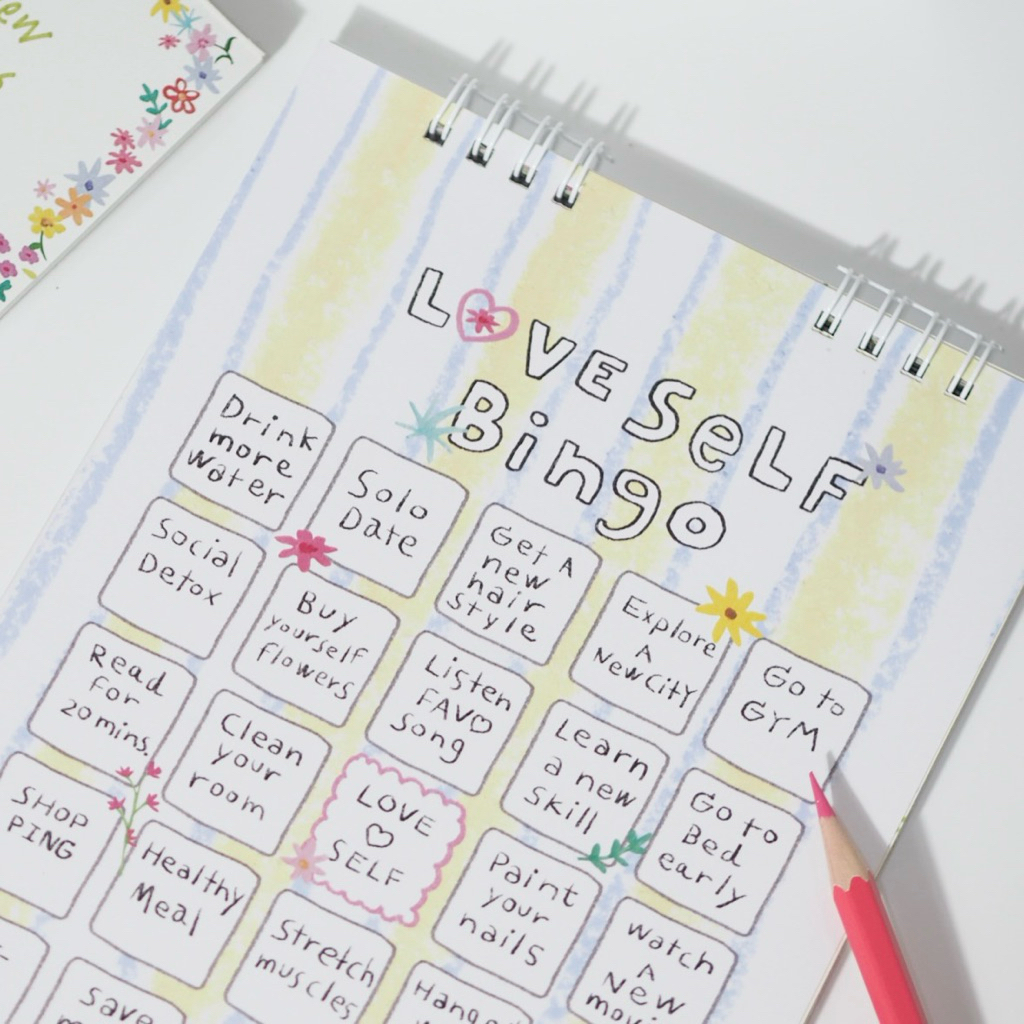 LOVE SELF
Bingo
Drink
more
water
Solo
Date
Get A
new
hair
style
Explore
A
New City
Go to
GYM
Social
Detox
Buy
yourself
flowers
Listen
FAVO
Song
Learn
a new
Skill
Go to
Bed
early
Read
For
20 mins.
Clean
your
room
LOVE
SELF
Paint
your
nails
watch
A
New
SHOP
PING
Healthy
Meal
Stretch
muscles
Save